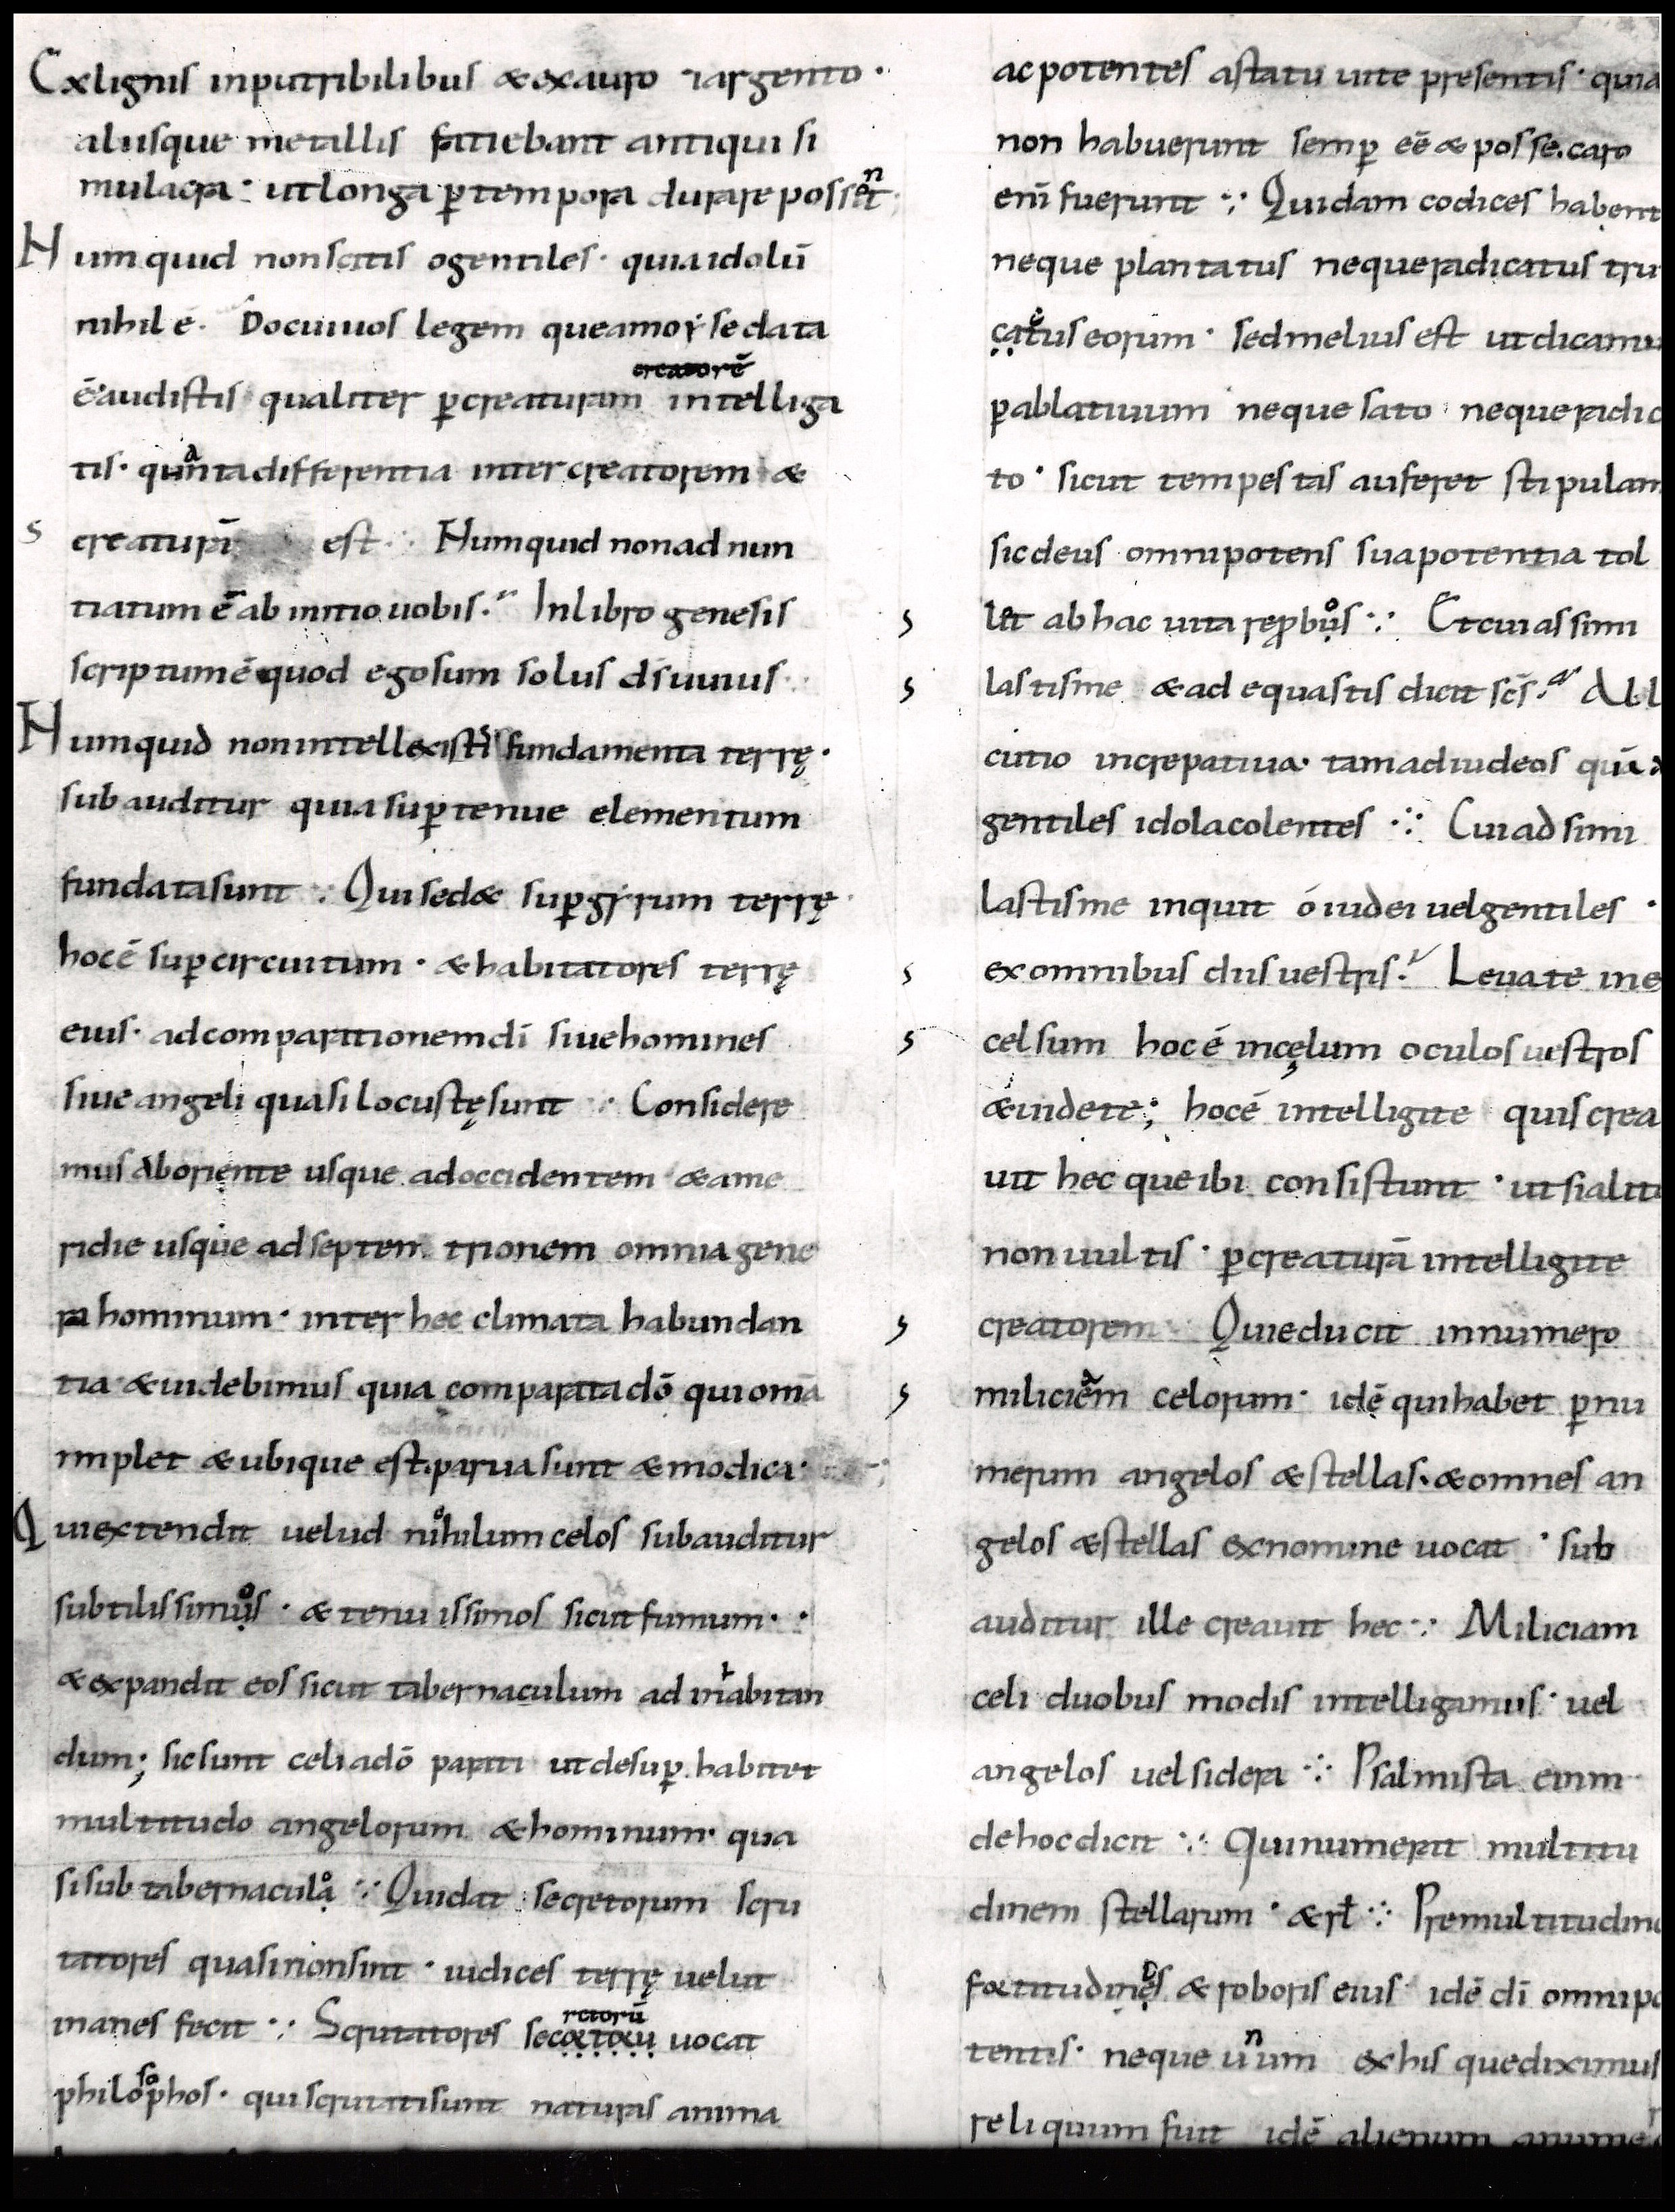 Exlignis inputribilibus &exauro 7argento·
aliisque metallis fatiebant antiqui si
mulacra· utlonga ꝑtempora durare possent
Numquid nonscitis ogentiles· quiaidolū
nihil ē· Docuiuos legem queamoÿse data
ē·audistis qualiter ꝑcreaturam creatorē intelliga
tis· quanta differentia inter creatorem &
creaturā est ∵ Numquid nonad nun
tiatum ē ab initio uobis· Inlibro genesis
scriptum ē quod egosum solus ds̄ uiuus·
Numquid nonintellexistis fundamenta terrę·
subauditur quiasuꝑtenue elementum
fundatasunt ∵ Quised& suꝑgẏrum terrę
hocē suꝑcircuitum· &habitatores terrę
eius· adcomparationemdī siuehomines
siue angeli quasi locustęsunt ∵ Considere
mus aboriente usque adoccidentem &ame
ridie usque adseptem trionem omniagene
ra hominum· inter hec climata habundan
tia &uidebimus quia comparatadō quiomā
implet &ubique est·paruasunt &modica·
Quiextendit uelud nihilum celos subauditur
subtilissimos· &tenuissimos sicutfumum··
&expandit eos sicut tabernaculum ad inhabitan
dum; sicsunt celiadō parati utdesuꝑ habitet
multitudo angelorum &hominum· qua
sisub tabernaculo ∵ Quidat secretorum scru
tatores quasinonsint· iudices terrę uelut
inanes fecit ∵ Scrutatores secretorū uocat
philosophos· quiscrutatisunt naturas anima
acpotentes astatu uite presentis· quia
non habuerunt semꝑ eē &posse.caro
enī fuerunt ∵ Quidam codices habent
neque plantatus nequeradicatus tru
cus eorum· sedmelius est utdicamu
ꝑablatiuum neque sato nequeradic
to· sicut tempestas auferet stipulam
sicdeus omnipotens suapotentia tol
let abhac uita reꝓbos ∵ Etcuiassimi
lastisme &ad equastis dicit scs̄· All
cutio increpatiua· tamadiudeos quā a
gentiles idolacolentes ∵ Cuiadsimi
lastisme inquit ó iudei uelgentiles ·
exomnibus diisuestris· Leuate ine
celsum hoc ē incęlum oculosuestros
&uidete; hocē intelligite quiscrea
uit hec queibi consistunt· utsialit
nonuultis· ꝑcreaturā intelligite
creatorem Quieducit innumero
miliciam celorum· idē quihabet ꝑnu
merum angelos &stellas·&omnes an
gelos &stellas exnomine uocat · sub
auditur ille creauit hec ∵ Miliciam
celi duobus modis intelligamus· uel
angelos uelsidera ∵ Psalmista enim
dehocdicit ∵ Quinumerat multitu
dinem stellarum· &rł ∵ Premultitudine
fortitudinis &roboris eius idē dī omnipo
tentis· neque unum exhis quediximus
reliquum fuit idē alienum anume